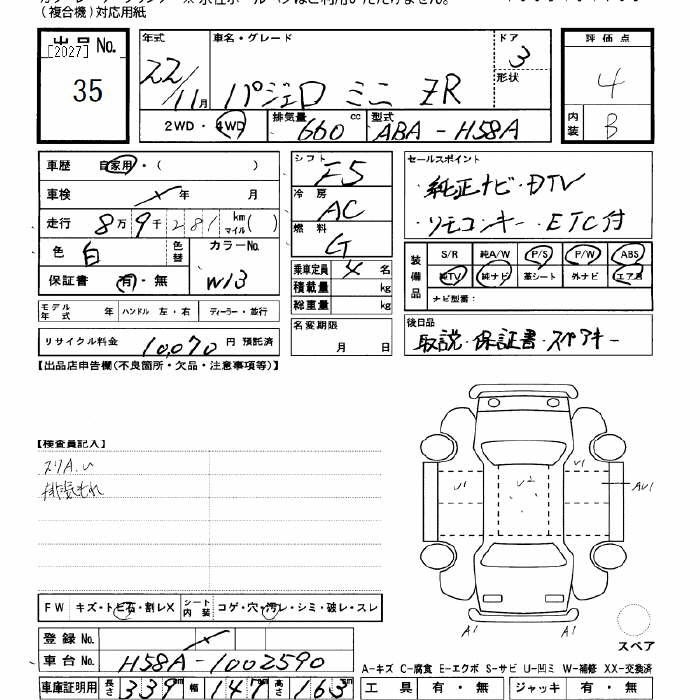 (複合機)対応用紙
出品No.
[2027]
35
年式
22/11月
車名・グレード
パジェロ ミニ ZR
ドア
3
形状
2WD・4WD
排気量
660 cc
型式
ABA-H58A
評価点
4
内装
B
車歴 自家用・( )
車検 × 年 月
走行 8万9千281 km マイル( )
色 白
色替
カラーNo.
W13
保証書 有・無
モデル年式 年 ハンドル 左・右 ディーラー・並行
リサイクル料金 10,070 円 預託済
シフト
F5
冷房
AC
燃料
G
乗車定員 4 名
積載量 kg
総重量 kg
名変期限
月 日
セールスポイント
・純正ナビ・DTV
・リモコンキー・ETC付
装備品
S/R 純A/W P/S P/W ABS
純TV 純ナビ 革シート 外ナビ エア恩
ナビ型番:
後日品
取説・保証書・スペアキー
【出品店申告欄(不良箇所・欠品・注意事項等)】
【検査員記入】
スリA.U
排気もれ
U1
U2
U1
AU1
A1
A1
スペア
FW キズ・トビ石・割レX
シート内装 コゲ・穴・汚レ・シミ・破レ・スレ
登録No. ×
車台No. H58A-1002590
A-キズ C-腐食 E-エクボ S-サビ U-凹ミ W-補修 XX-交換済
車庫証明用 長さ 339cm 幅 147cm 高さ 163cm
工具 有・無 ジャッキ 有・無